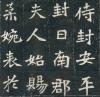 侍封安平
封日南郡
夫人始賜
柔婉表於